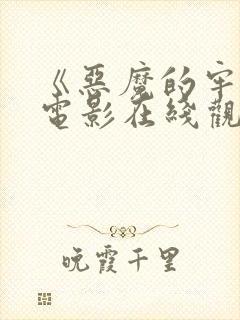 《惡魔的牢
電影在綫觀
晚霞千里